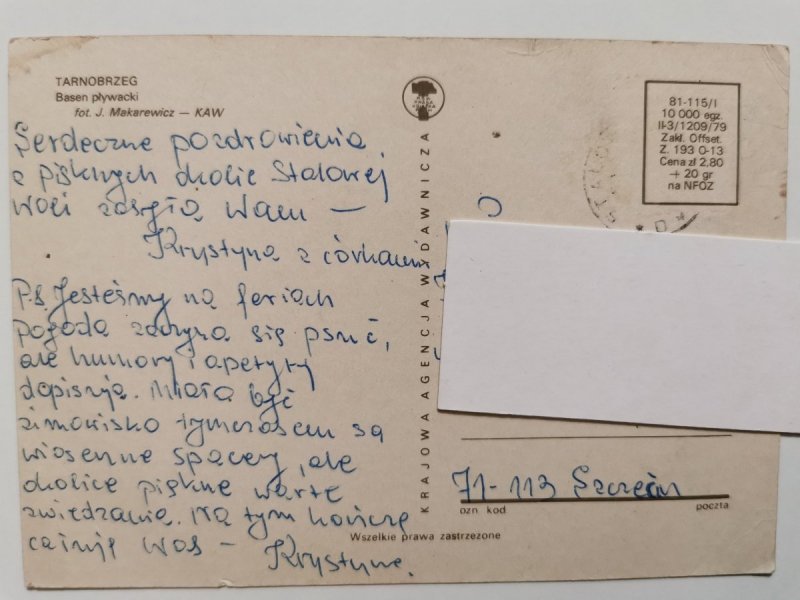 TARNOBRZEG
Basen pływacki
fot. J. Makarewicz — KAW
Serdeczne pozdrowienia
z pięknych okolic Stalowej
Woli zasyła Wam —
Krystyna z córkami
P.S. Jesteśmy na feriach
pogoda zaczyna się psuć,
ale humory i apetyty
dopisują. Miało być
zimowisko tymczasem są
wiosenne spacery, ale
okolice piękne warte
zwiedzania. Na tym kończę
całuję Was — Krystyna.
KRAJOWA AGENCJA WYDAWNICZA
81-115/I
10 000 egz.
II-3/1209/79
Zakł. Offset.
Z. 193 0-13
Cena zł 2,80
+ 20 gr
na NFOZ
71-113 Szczecin
ozn. kod poczta
Wszelkie prawa zastrzeżone